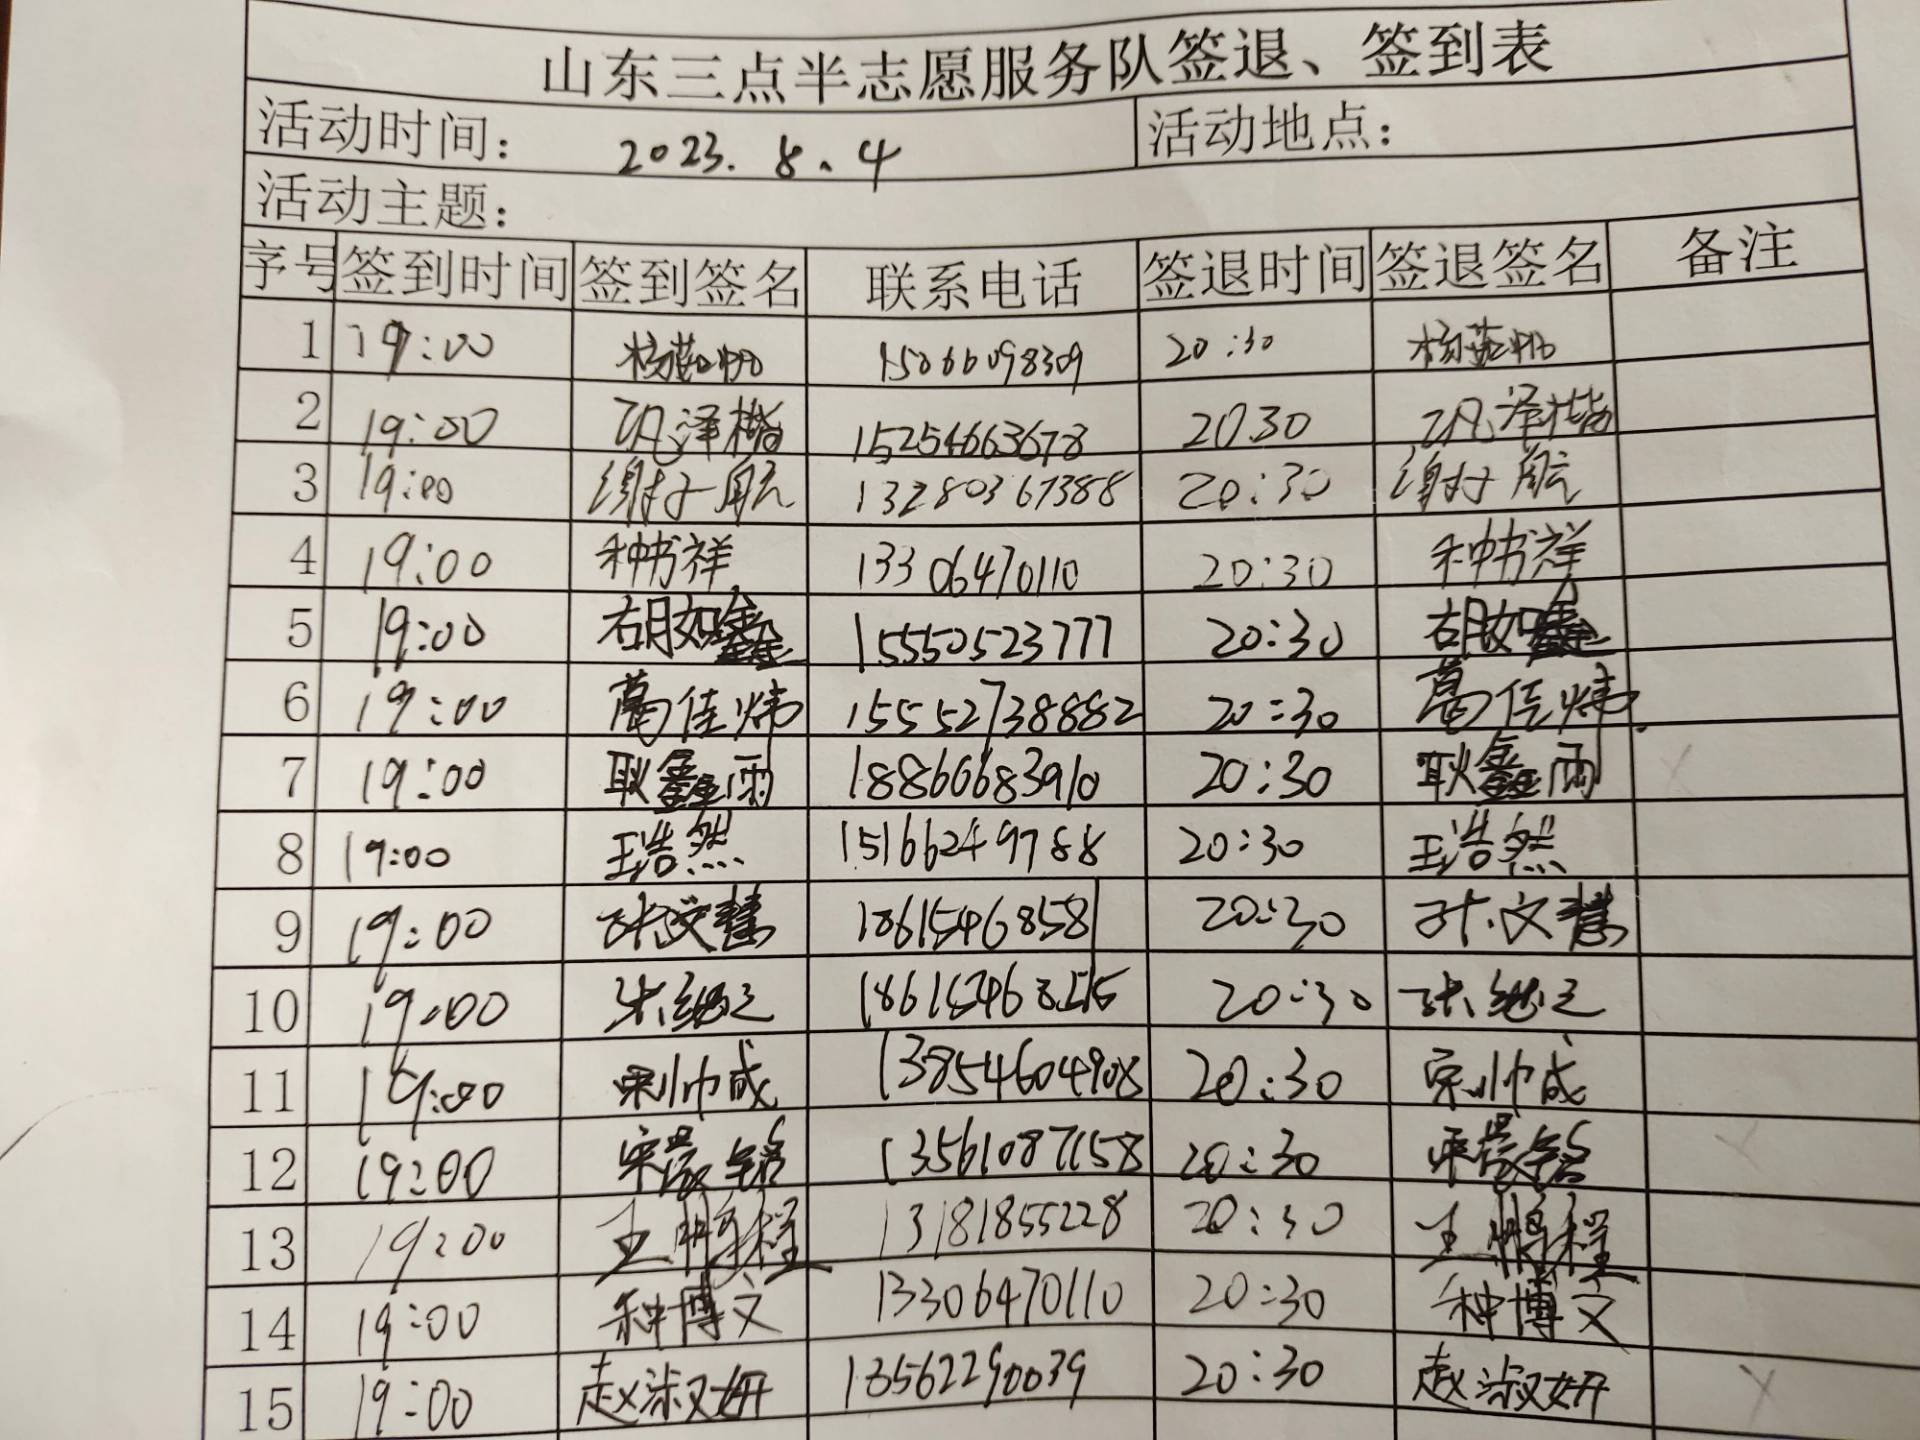 山东三点半志愿服务队签退、签到表
活动时间: 2023.8.4 活动地点:
活动主题:
序号 签到时间 签到签名 联系电话 签退时间 签退签名 备注
1 19:00 15066098309 20:30
2 19:00 15254663678 20.30
3 19:00 谢子航 13280367388 20:30 谢子航
4 19:00 种书祥 13306470110 20:30 种书祥
5 19:00 胡如鑫 15550523777 20:30 胡如鑫
6 19:00 葛佳炜 15552738882 20:30 葛佳炜
7 19:00 耿鑫雨 18866683910 20:30 耿鑫雨
8 19:00 王浩然 15166249788 20:30 王浩然
9 19:00 张文慧 18615468581 20:30 张文慧
10 19:00 张继之 20:30 张继之
11 19:00 宋帅成 13854604908 20:30 宋帅成
12 19:00 宋晨铭 13561087158 20:30 宋晨铭
13 19:00 王鹏程 13181855228 20:30 王鹏程
14 19:00 种博文 13306470110 20:30 种博文
15 19:00 赵淑妍 13562290039 20:30 赵淑妍